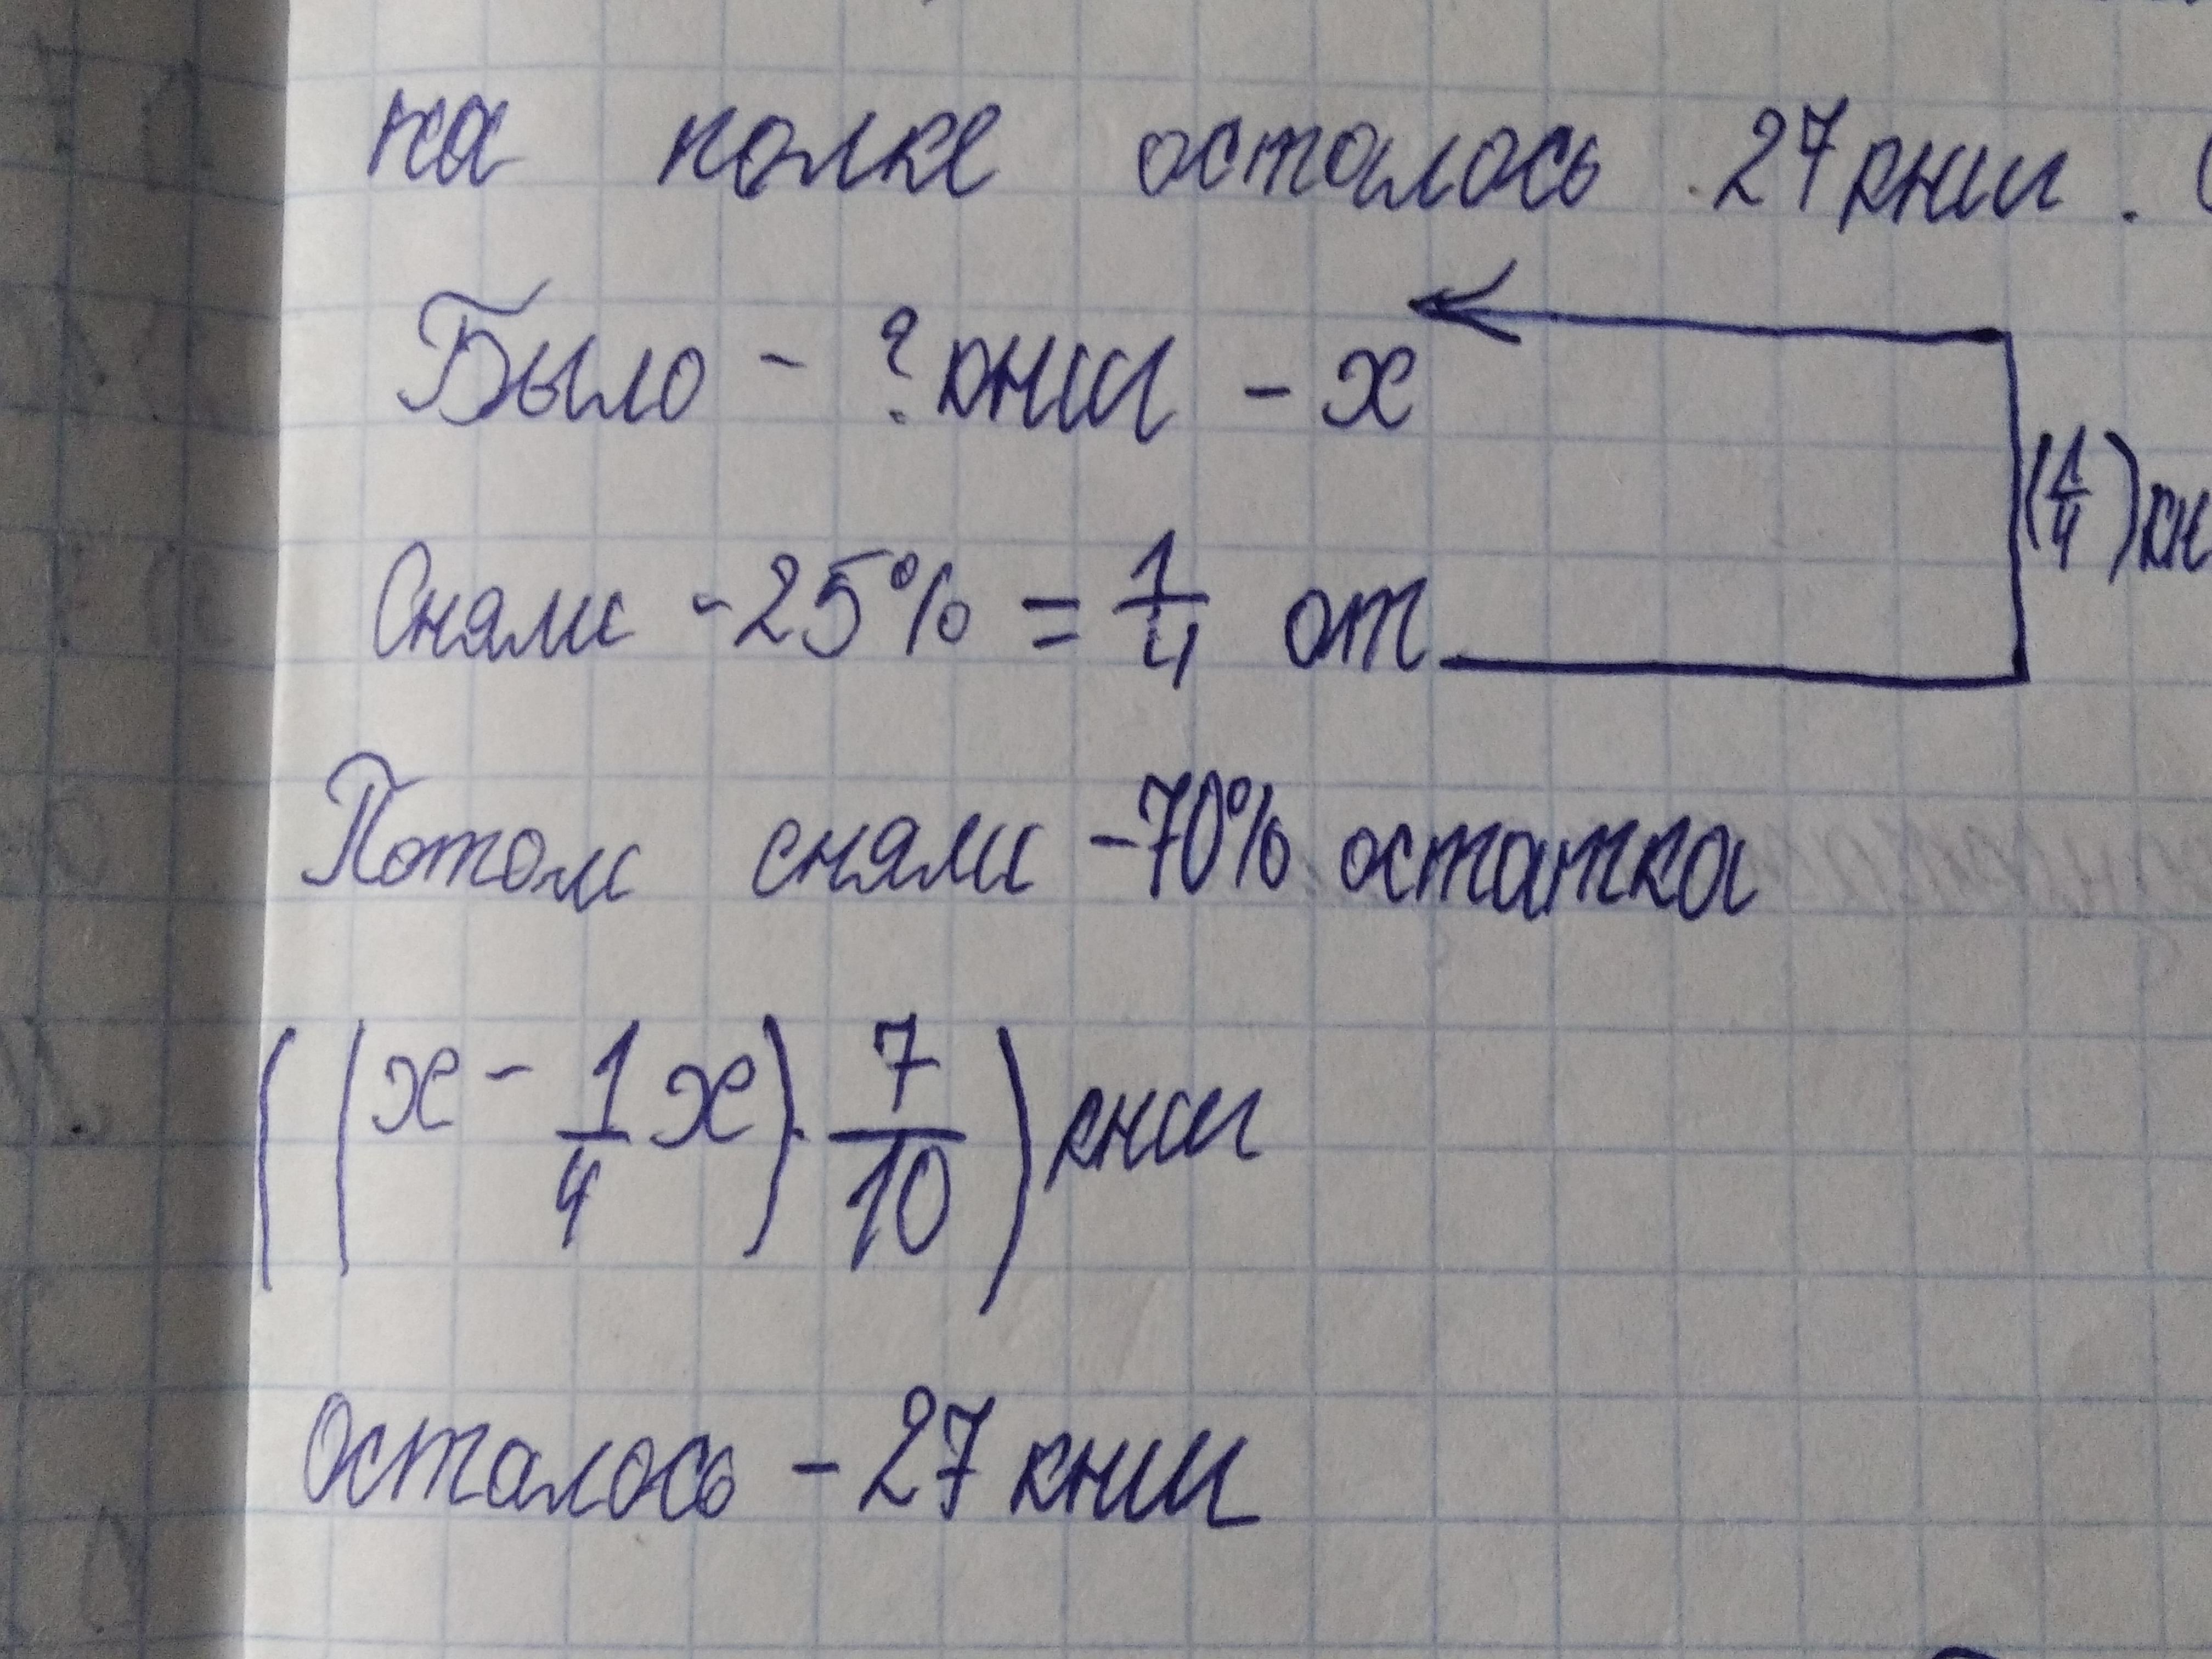 на полке осталось 27 книг.
Было - ? книг - x
(1/4) кн
Сняли - 25% = 1/4 от
Потом сняли - 70% остатка
((x - 1/4 x) · 7/10) книг
Осталось - 27 книг